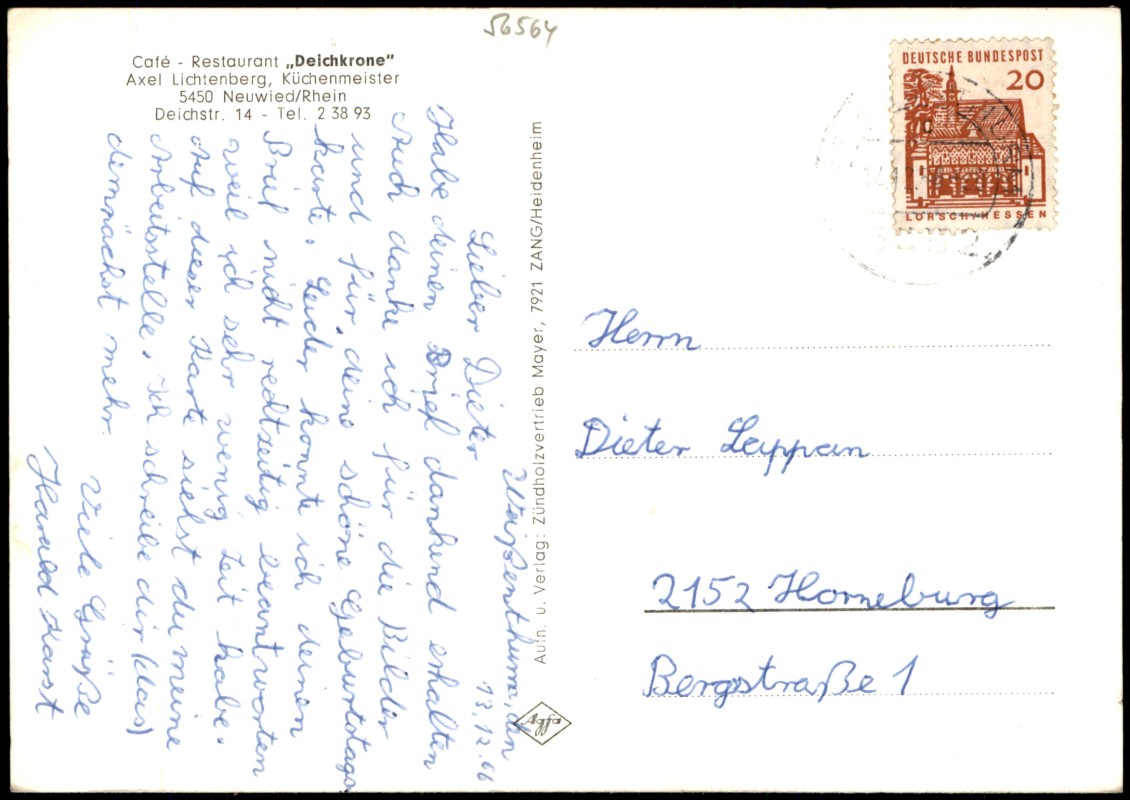 56564
Café - Restaurant „Deichkrone"
Axel Lichtenberg, Küchenmeister
5450 Neuwied/Rhein
Deichstr. 14 - Tel. 2 38 93
Weißenthurm, den
13.12.66
Lieber Dieter
Habe deinen Brief dankend erhalten
Auch danke ich für die Bilder
und für deine schöne Geburtstags
karte. Leider konnte ich deinen
Brief nicht rechtzeitig beantworten
weil ich sehr wenig Zeit habe.
Auf dieser Karte siehst du meine
Arbeitsstelle. Ich schreibe dir (klaus)
dimnächst mehr.
Viele Grüße
Harald Karst
Aufn. u. Verlag: Zündholzvertrieb Mayer, 7921 ZANG/Heidenheim
Agfa
DEUTSCHE BUNDESPOST
20
LORSCH/HESSEN
Herrn
Dieter Lappan
2152 Horneburg
Bergstraße 1